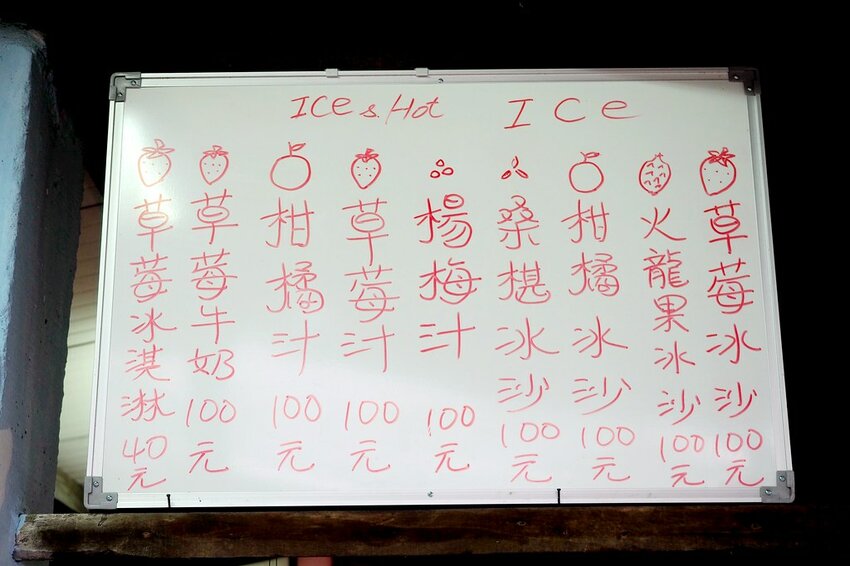 ICe & Hot ICe
草莓冰沙100元
火龍果冰沙100元
柑橘冰沙100元
桑椹冰沙100元
楊梅汁100元
草莓汁100元
柑橘汁100元
草莓牛奶100元
草莓冰淇淋40元